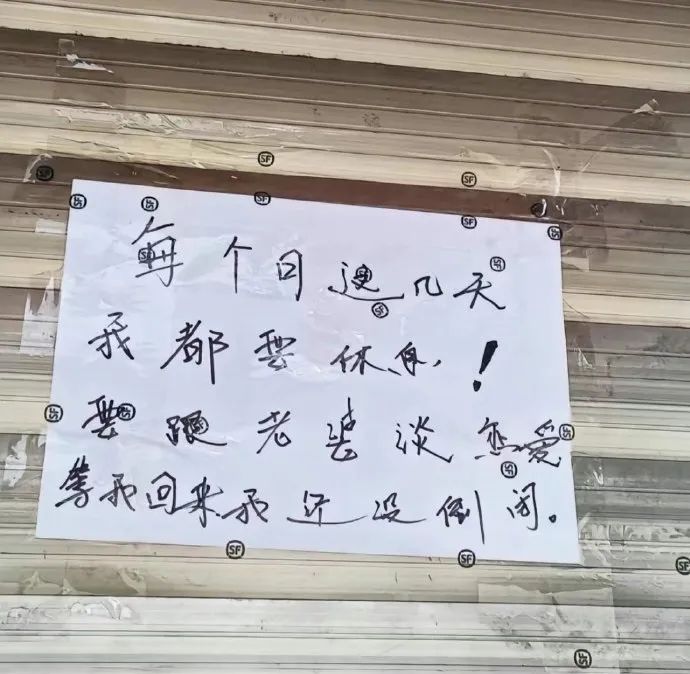 每个月這几天
我都要休息！
要跟老婆谈恋愛
等我回来我还没倒闭。